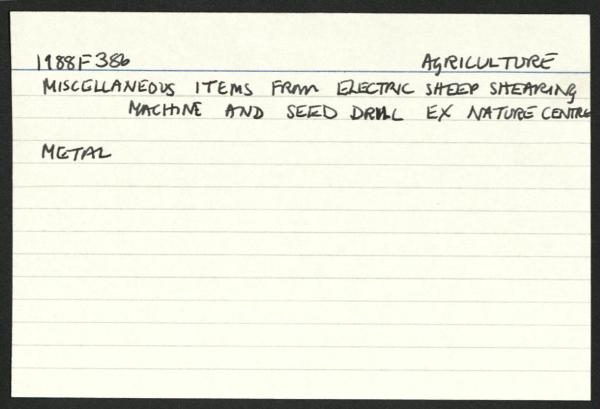 1988F386 AGRICULTURE
MISCELLANEOUS ITEMS FROM ELECTRIC SHEEP SHEARING
MACHINE AND SEED DRILL EX NATURE CENTRE
METAL